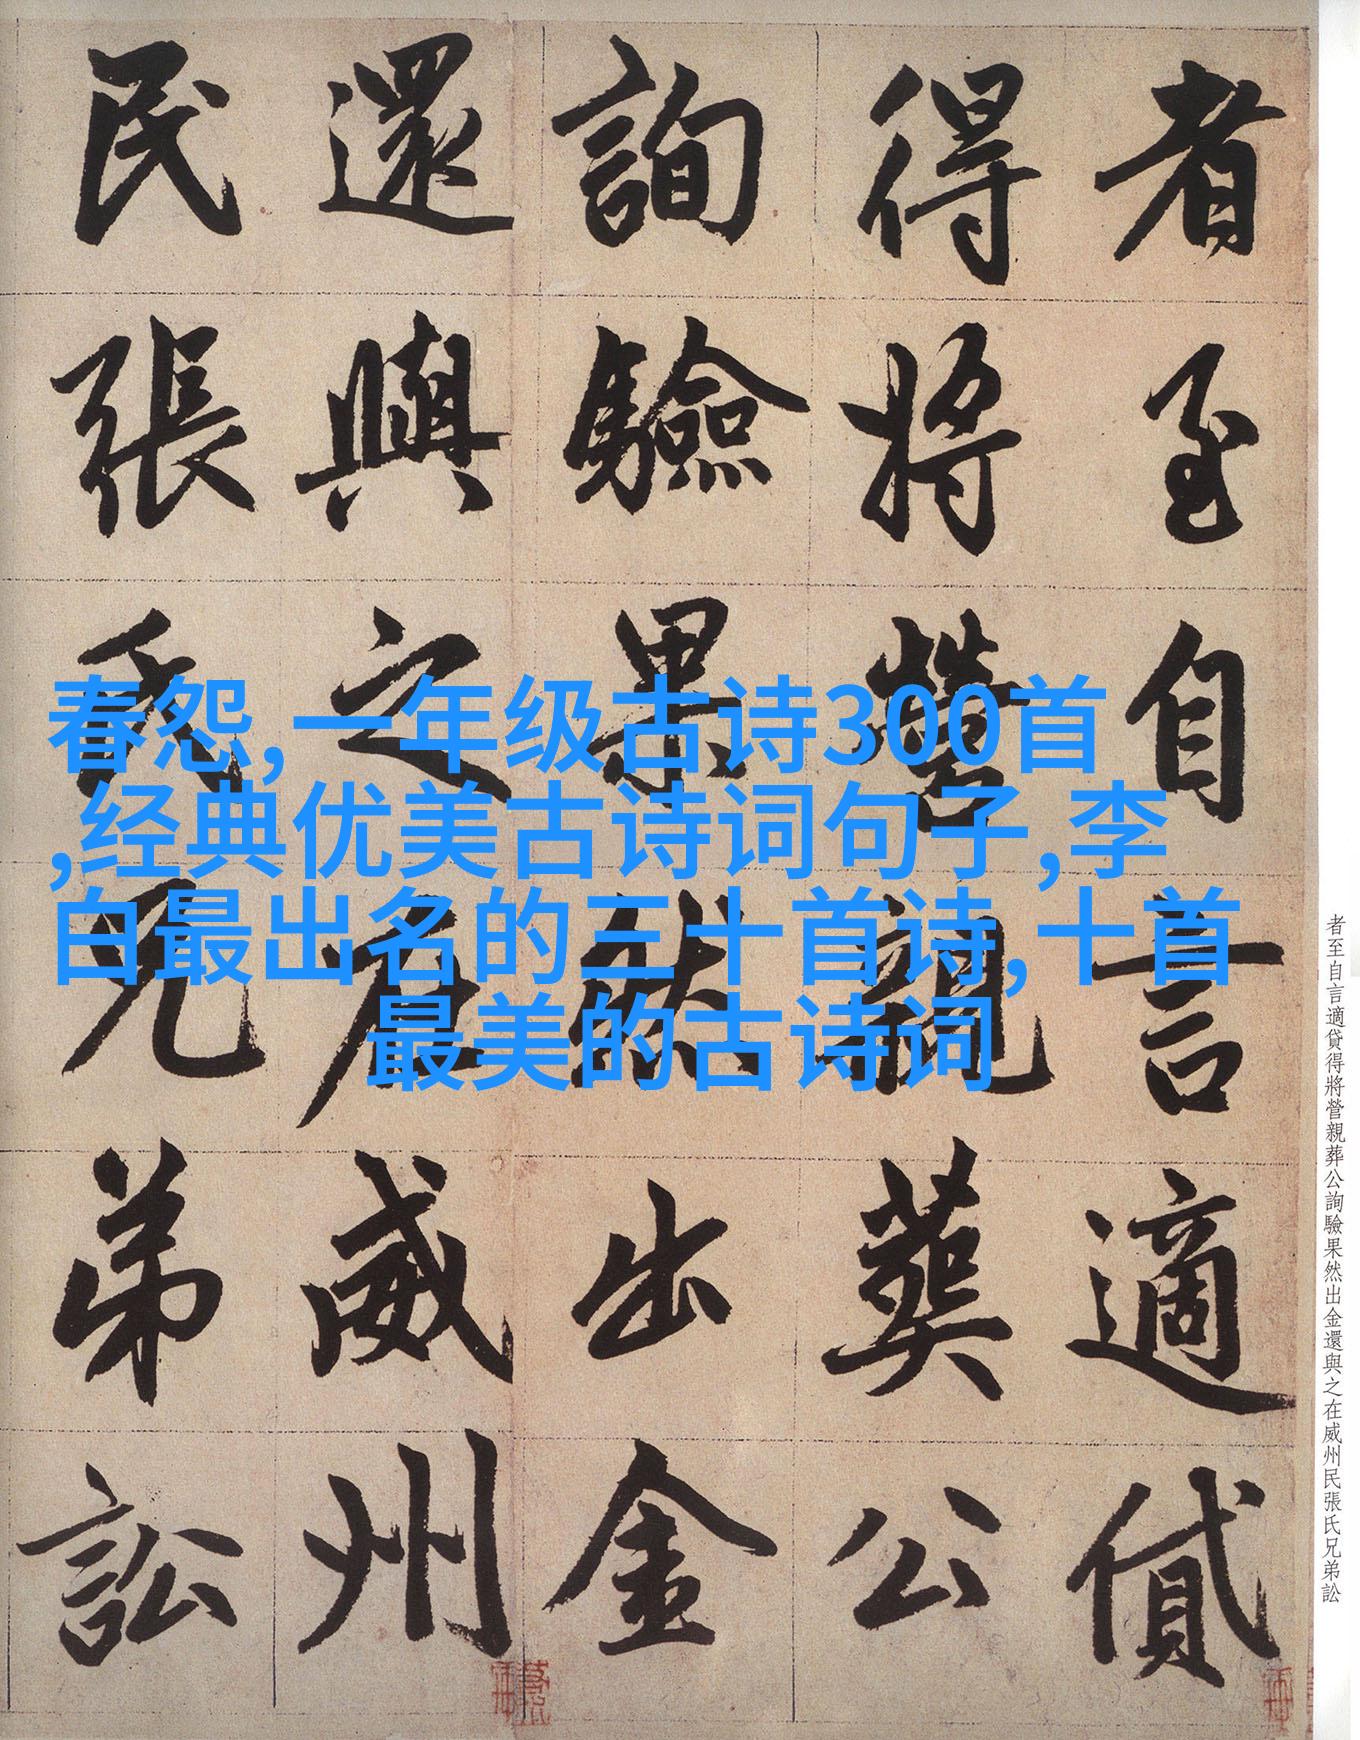 春怨,一年级古诗300首
,经典优美古诗词句子,李
白最出名的三十首诗,十首
最美的古诗词
者至自言適貸
得將營親葬公
詢驗果然出金
還與之在威州
民張氏兄弟訟
者至自言適貸得將營親葬公詢驗果然出金還與之在威州民張氏兄弟訟